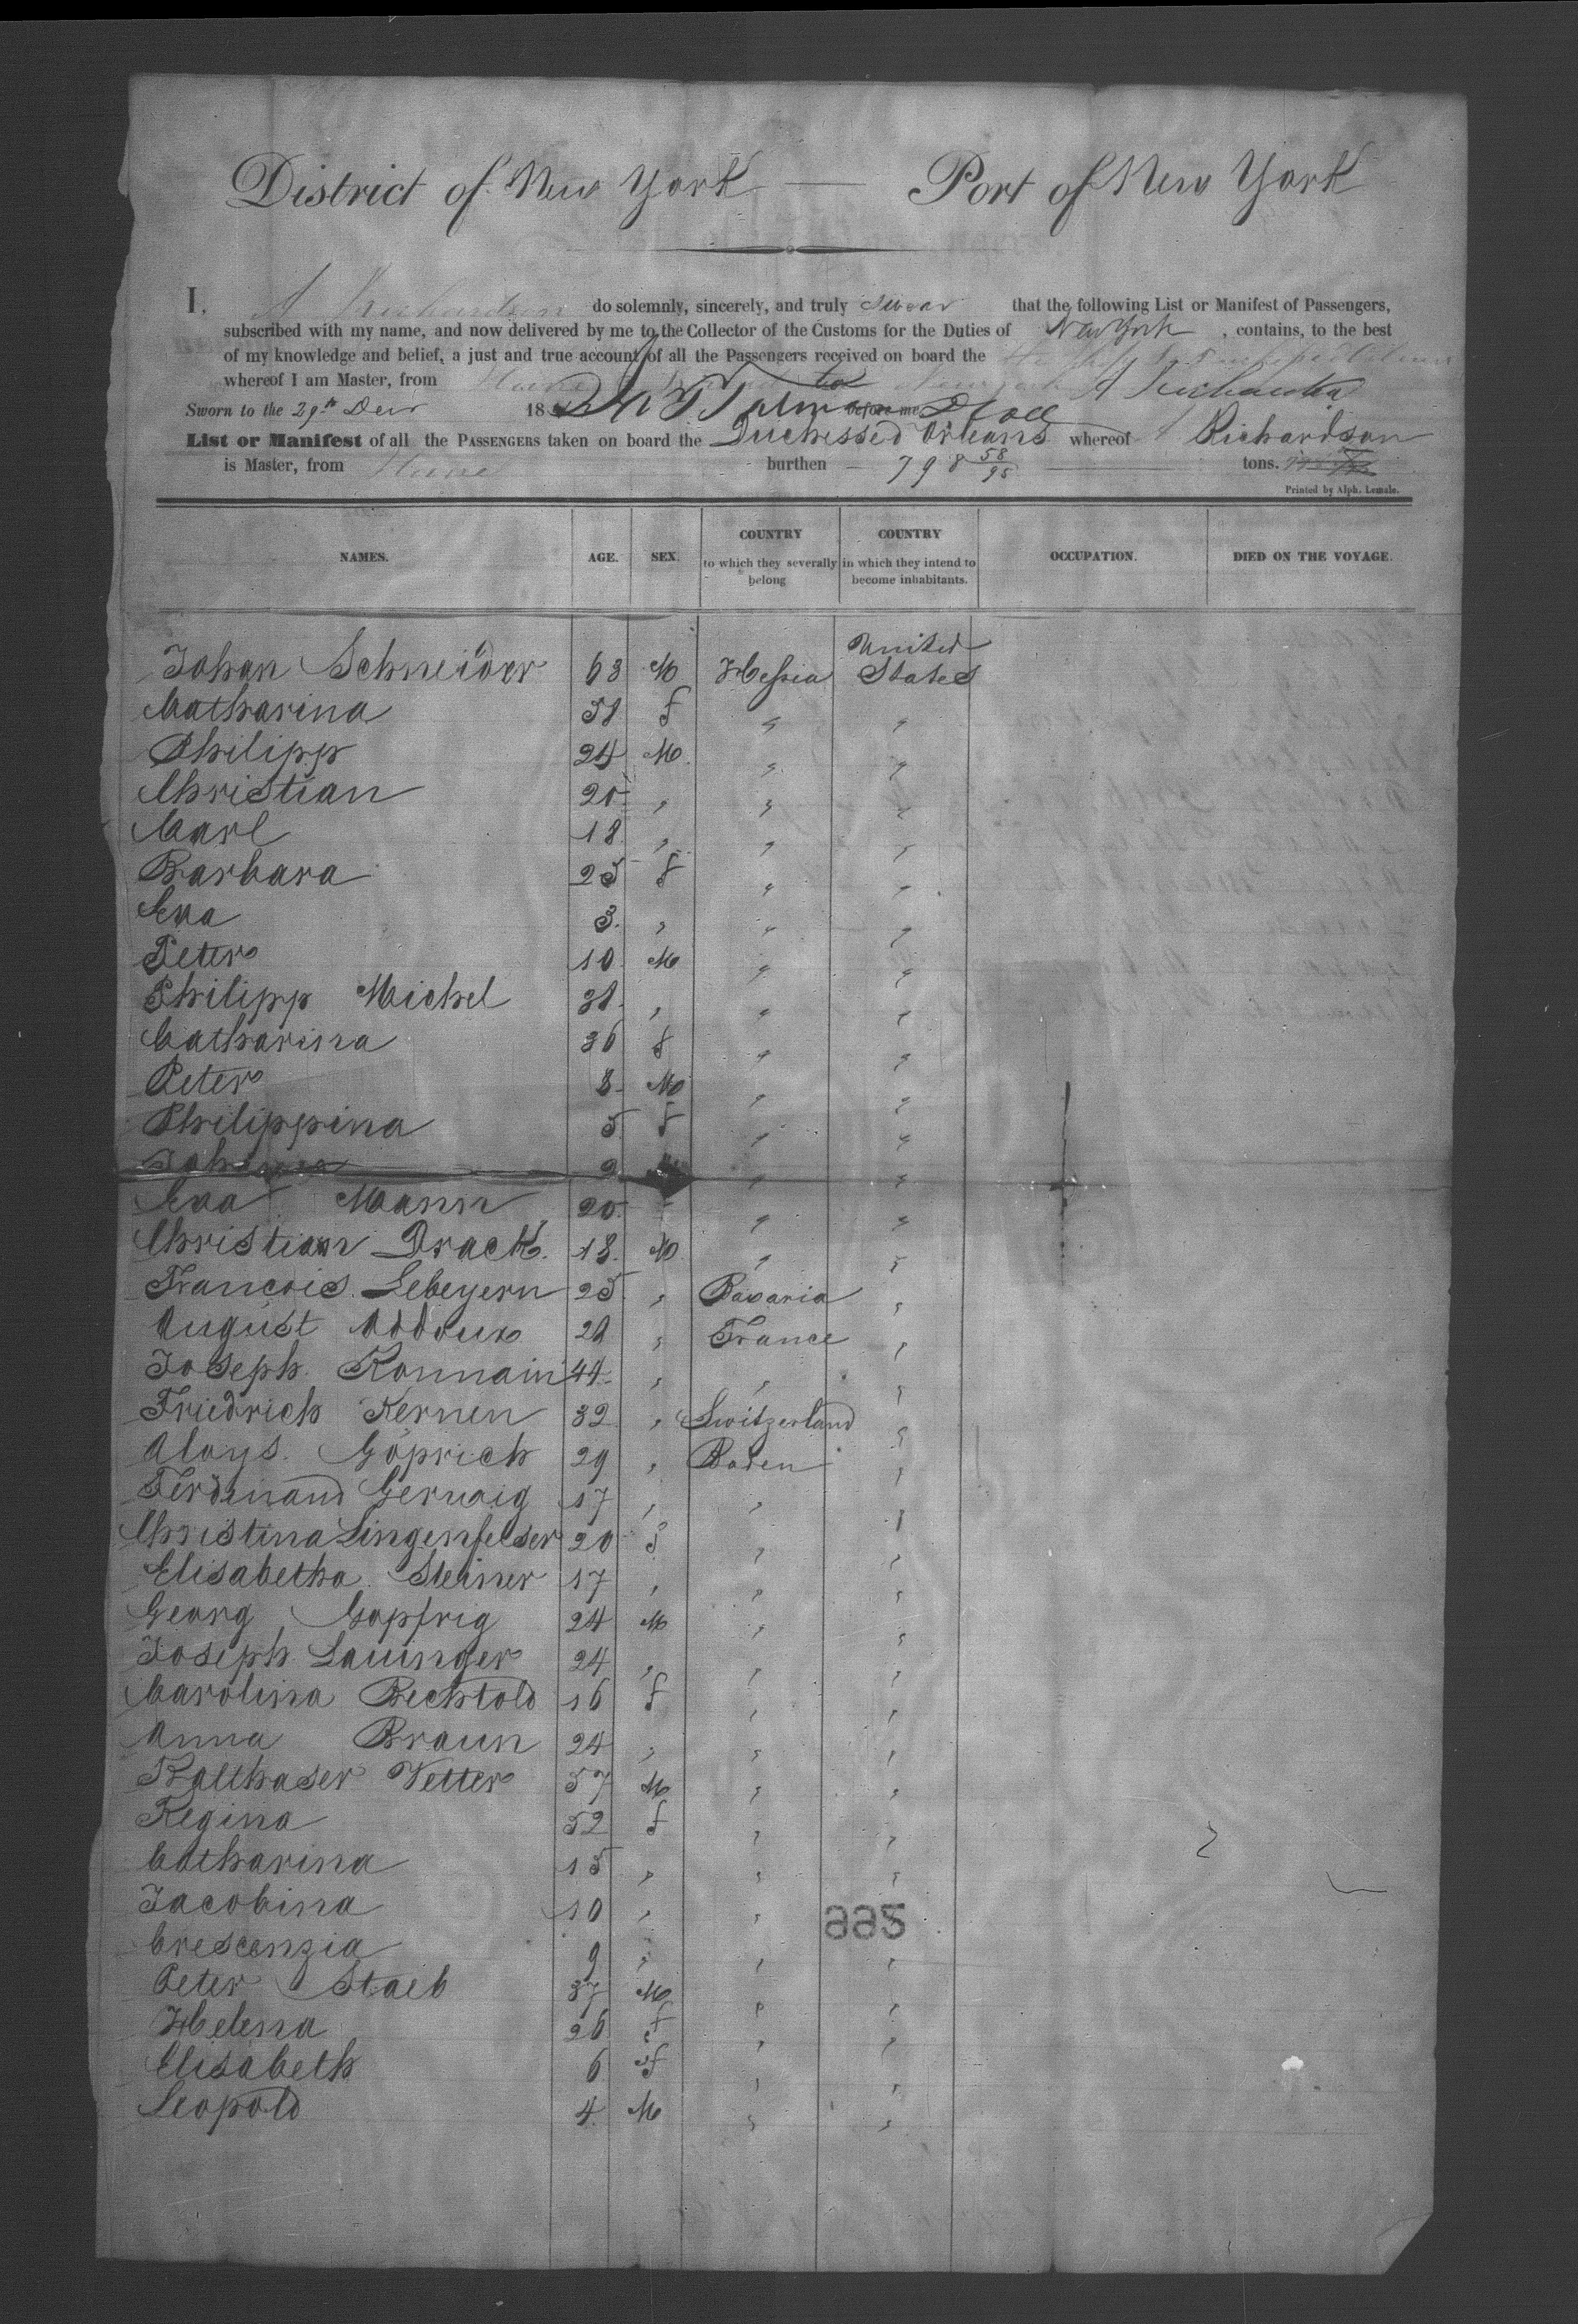 District of New York — Port of New York
I, A Richardson do solemnly, sincerely, and truly swear that the following List or Manifest of Passengers,
subscribed with my name, and now delivered by me to the Collector of the Customs for the Duties of New York, contains, to the best
of my knowledge and belief, a just and true account of all the Passengers received on board the
whereof I am Master, from
A Richardson
Sworn to the 29th 18 before me
List or Manifest of all the PASSENGERS taken on board the Duchesse d'Orleans whereof Richardson
is Master, from burthen 798 58/95 tons.
Printed by Alph. Lemale.
NAMES. AGE. SEX. COUNTRY to which they severally belong COUNTRY in which they intend to become inhabitants. OCCUPATION. DIED ON THE VOYAGE.
Johan Schneider 63 M Hessia United States
Catharina 58 f " "
Philipp 24 M " "
Christian 20 " " "
Carl 18 " " "
Barbara 25 f " "
Eva 3 " " "
Peter 10 M " "
Philipp Michel 38 " " "
Catharina 36 f " "
Peter 8 M " "
Philippina 5 f " "
2 " "
Eva Mann 20 " "
Christian Drack 18 M " "
Francois Lebeyern 25 " Bavaria "
August Addoux 28 " France "
Joseph Ronnain 44 " " "
Friedrich Kernen 32 " Switzerland "
Aloys Göprich 29 " Baden "
Ferdinand Gerwig 17 " " "
Christina Lingenfelser 20 f " "
Elisabetha Steiner 17 " " "
Georg Gopfrig 24 M " "
Joseph Lauinger 24 " " "
Carolina Bechtold 16 f " "
Anna Braun 24 " " "
Balthaser Vetter 57 M " "
Regina 52 f " "
Catharina 15 " " "
Jacobina 10 " "
Crescenzia 9 " " "
Peter Staeb 37 M " "
Helena 26 f " "
Elisabeth 6 f " "
Leopold 4 M " "